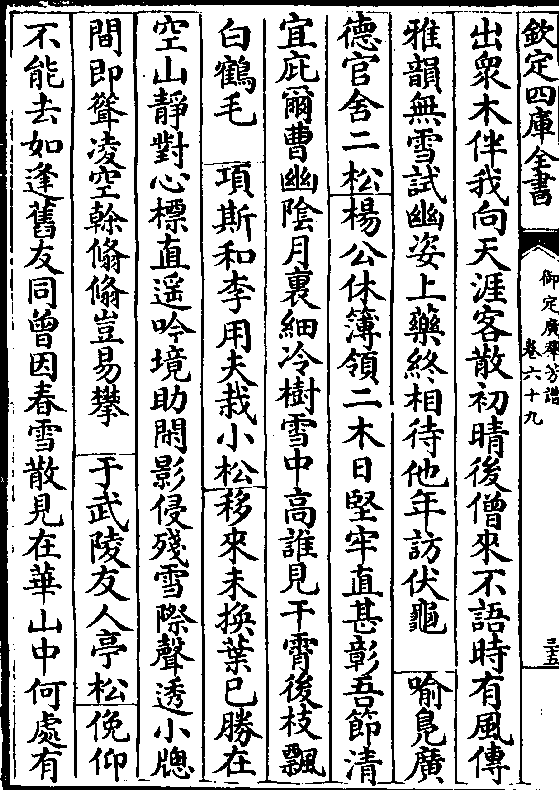 欽定四庫全書
御定廣羣芳譜
卷六十九
三十五
出衆木伴我向天涯客散初晴後僧來不語時有風傳
雅韻無雪試幽姿上藥終相待他年訪伏龜 喻鳧廣
德官舍二松 楊公休簿領二木日堅牢直甚彰吾節清
宜庇爾曹幽陰月裏細冷樹雪中高誰見干霄後枝飄
白鶴毛 項斯和李用夫栽小松 移來未換葉已勝在
空山靜對心標直遥吟境助閒影侵殘雪際聲透小牕
間即聳凌空榦翛翛豈易攀 于武陵友人亭松 俛仰
不能去如逢舊友同曾因春雪散見在華山中何處有